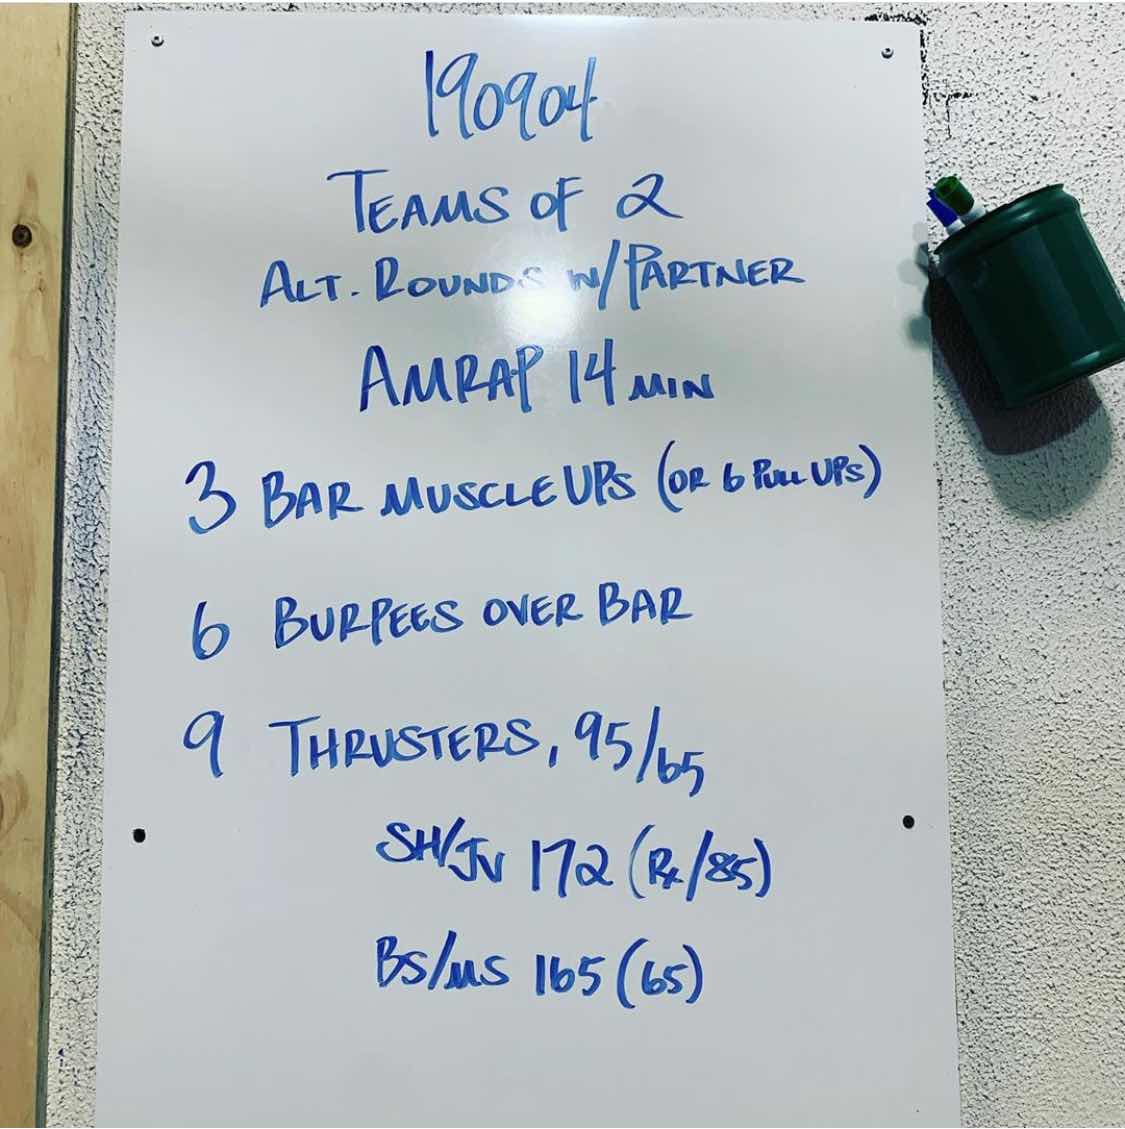 190904
TEAMS OF 2
ALT. ROUNDS W/PARTNER
AMRAP 14 MIN
3 BAR MUSCLE UPS (OR 6 PULL UPS)
6 BURPEES OVER BAR
9 THRUSTERS, 95/65
SH/JV 172 (Rx/85)
BS/MS 165 (65)